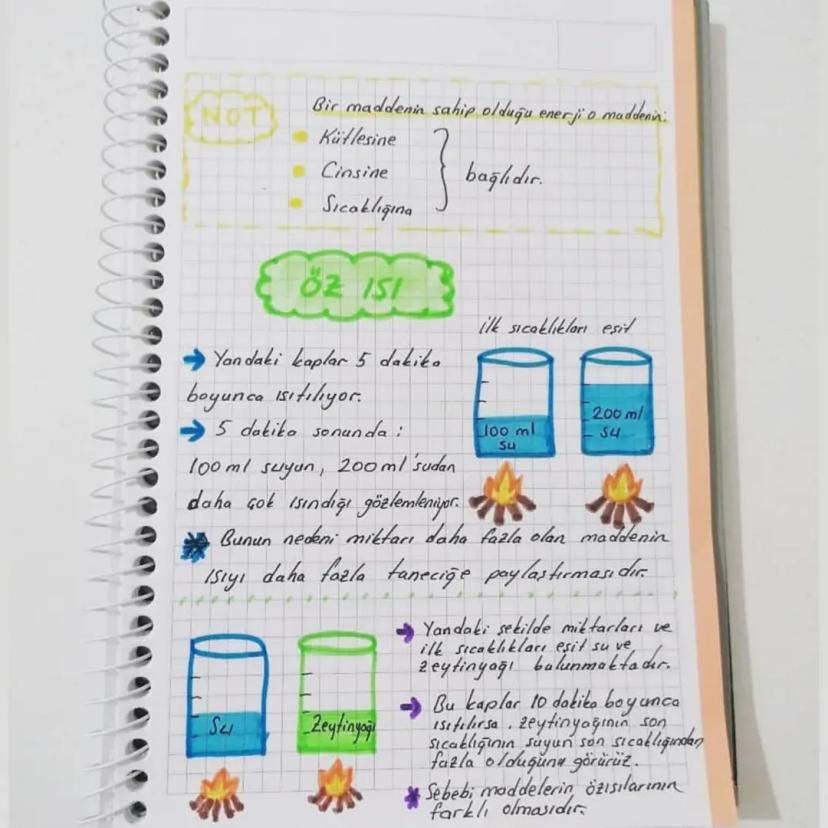 NOT
Bir maddenin sahip olduğu enerji o maddenin:
Kütlesine
Cinsine
Sıcaklığına
bağlıdır.
ÖZ ISI
ilk sıcaklıkları eşit
Yandaki kaplar 5 dakika
boyunca ısıtılıyor.
5 dakika sonunda:
100 ml suyun, 200 ml'sudan
daha çok ısındığı gözlemleniyor.
100 ml
su
200 ml
su
Bunun nedeni miktarı daha fazla olan maddenin
ısıyı daha fazla taneciğe paylaştırmasıdır.
Su
Zeytinyağı
Yandaki şekilde miktarları ve
ilk sıcaklıkları eşit su ve
zeytinyağı bulunmaktadır.
Bu kaplar 10 dakika boyunca
ısıtılırsa, zeytinyağının son
sıcaklığının suyun son sıcaklığından
fazla olduğunu görürüz.
Sebebi maddelerin, özısılarının
farklı olmasıdır.